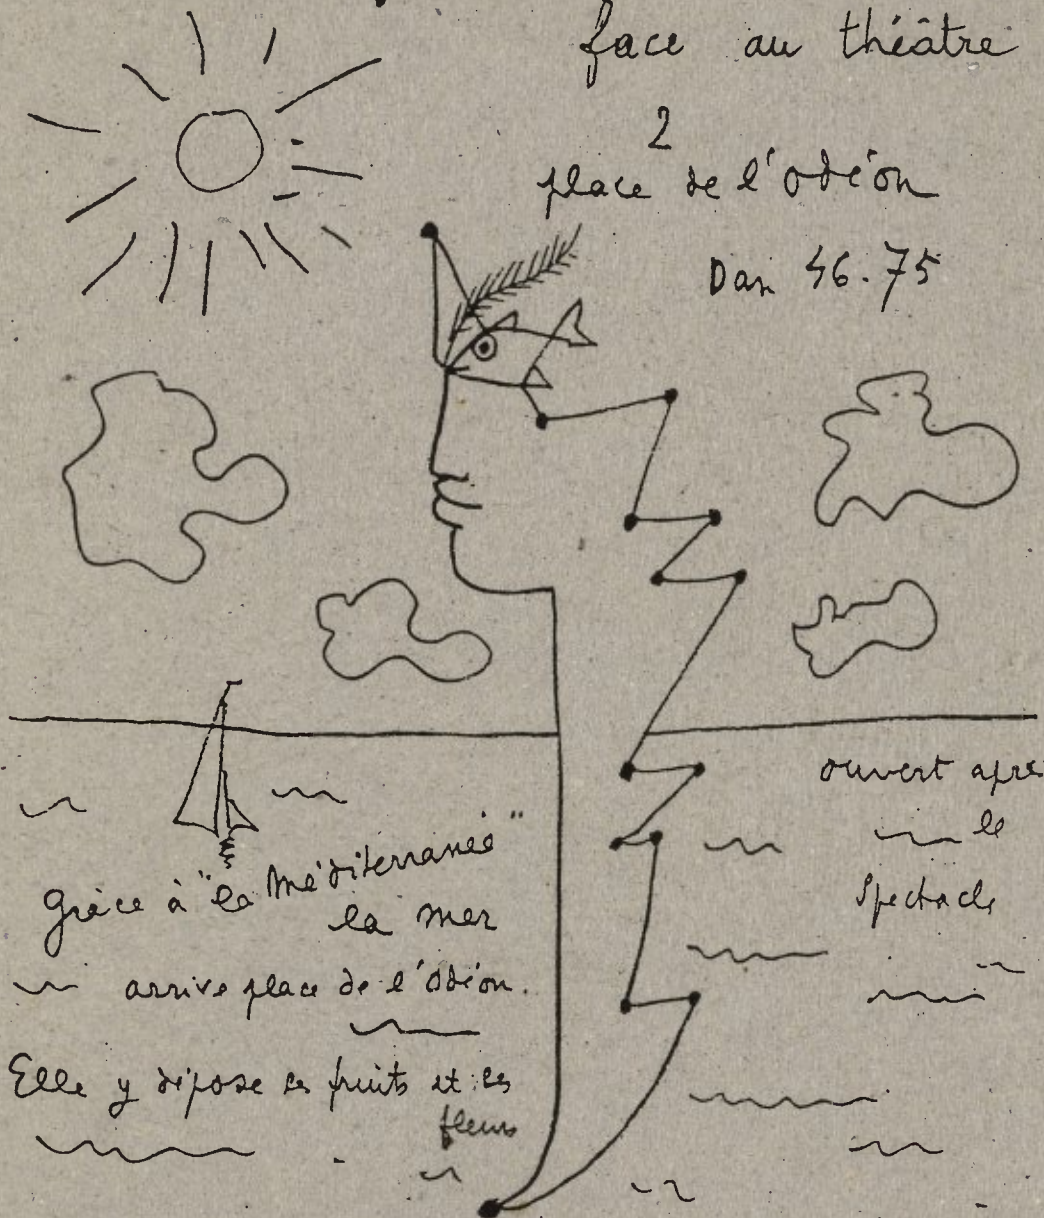 face au théâtre
2
place de l'Odéon
Dan 46.75
ouvert après
le
spectacle
Grâce à "la Méditerranée"
la mer
arrive place de l'Odéon.
Elle y dépose ses fruits et ses
fleurs